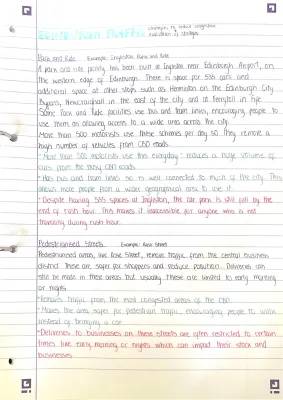 strategies to reduce congestion
evaluation of strategies
Park and Ride Example: Ingliston Park and Ride
A park and ride facility has been built at Ingliston near Edinburgh Airport, on
the western edge of Edinburgh. There is space for 535 cars and
additional space at other stops such as Hermiston on the Edinburgh City
Bypass, Newcraighall in the east of the city and at Ferrytoll in Fife.
Some Park and Ride facilities use bus and tram links, encouraging people to
use them as allowing access to a wide area across the city.
More than 500 motorists use these schemes per day so they remove a
high number of vehicles from CBD roads.
- More than 500 motorists use this everyday - reduces a huge volume of
cars from the busy CBD roads.
- Has bus and tram links so is well connected to much of the city. This
allows more people from a wider geographical area to use it.
- Despite having 535 spaces at Ingliston, the car park is still full by the
end of rush hour. This makes it inaccessible for anyone who is not
travelling during rush hour.
Pedestrianised Streets Example: Rose Street
Pedestrianised areas, like Rose Street, remove traffic from the central business
district. These are safer for shoppers and reduce pollution. Deliveries can
still be made in these areas but usually these are limited to early morning
or nights.
- Removes traffic from the most congested areas of the CBD.
- Makes the area safer for pedestrian traffic, encouraging people to walk
instead of bringing a car.
- Deliveries to businesses on these streets are often restricted to certain
times like early morning or nights which can impact their stock and
businesses.